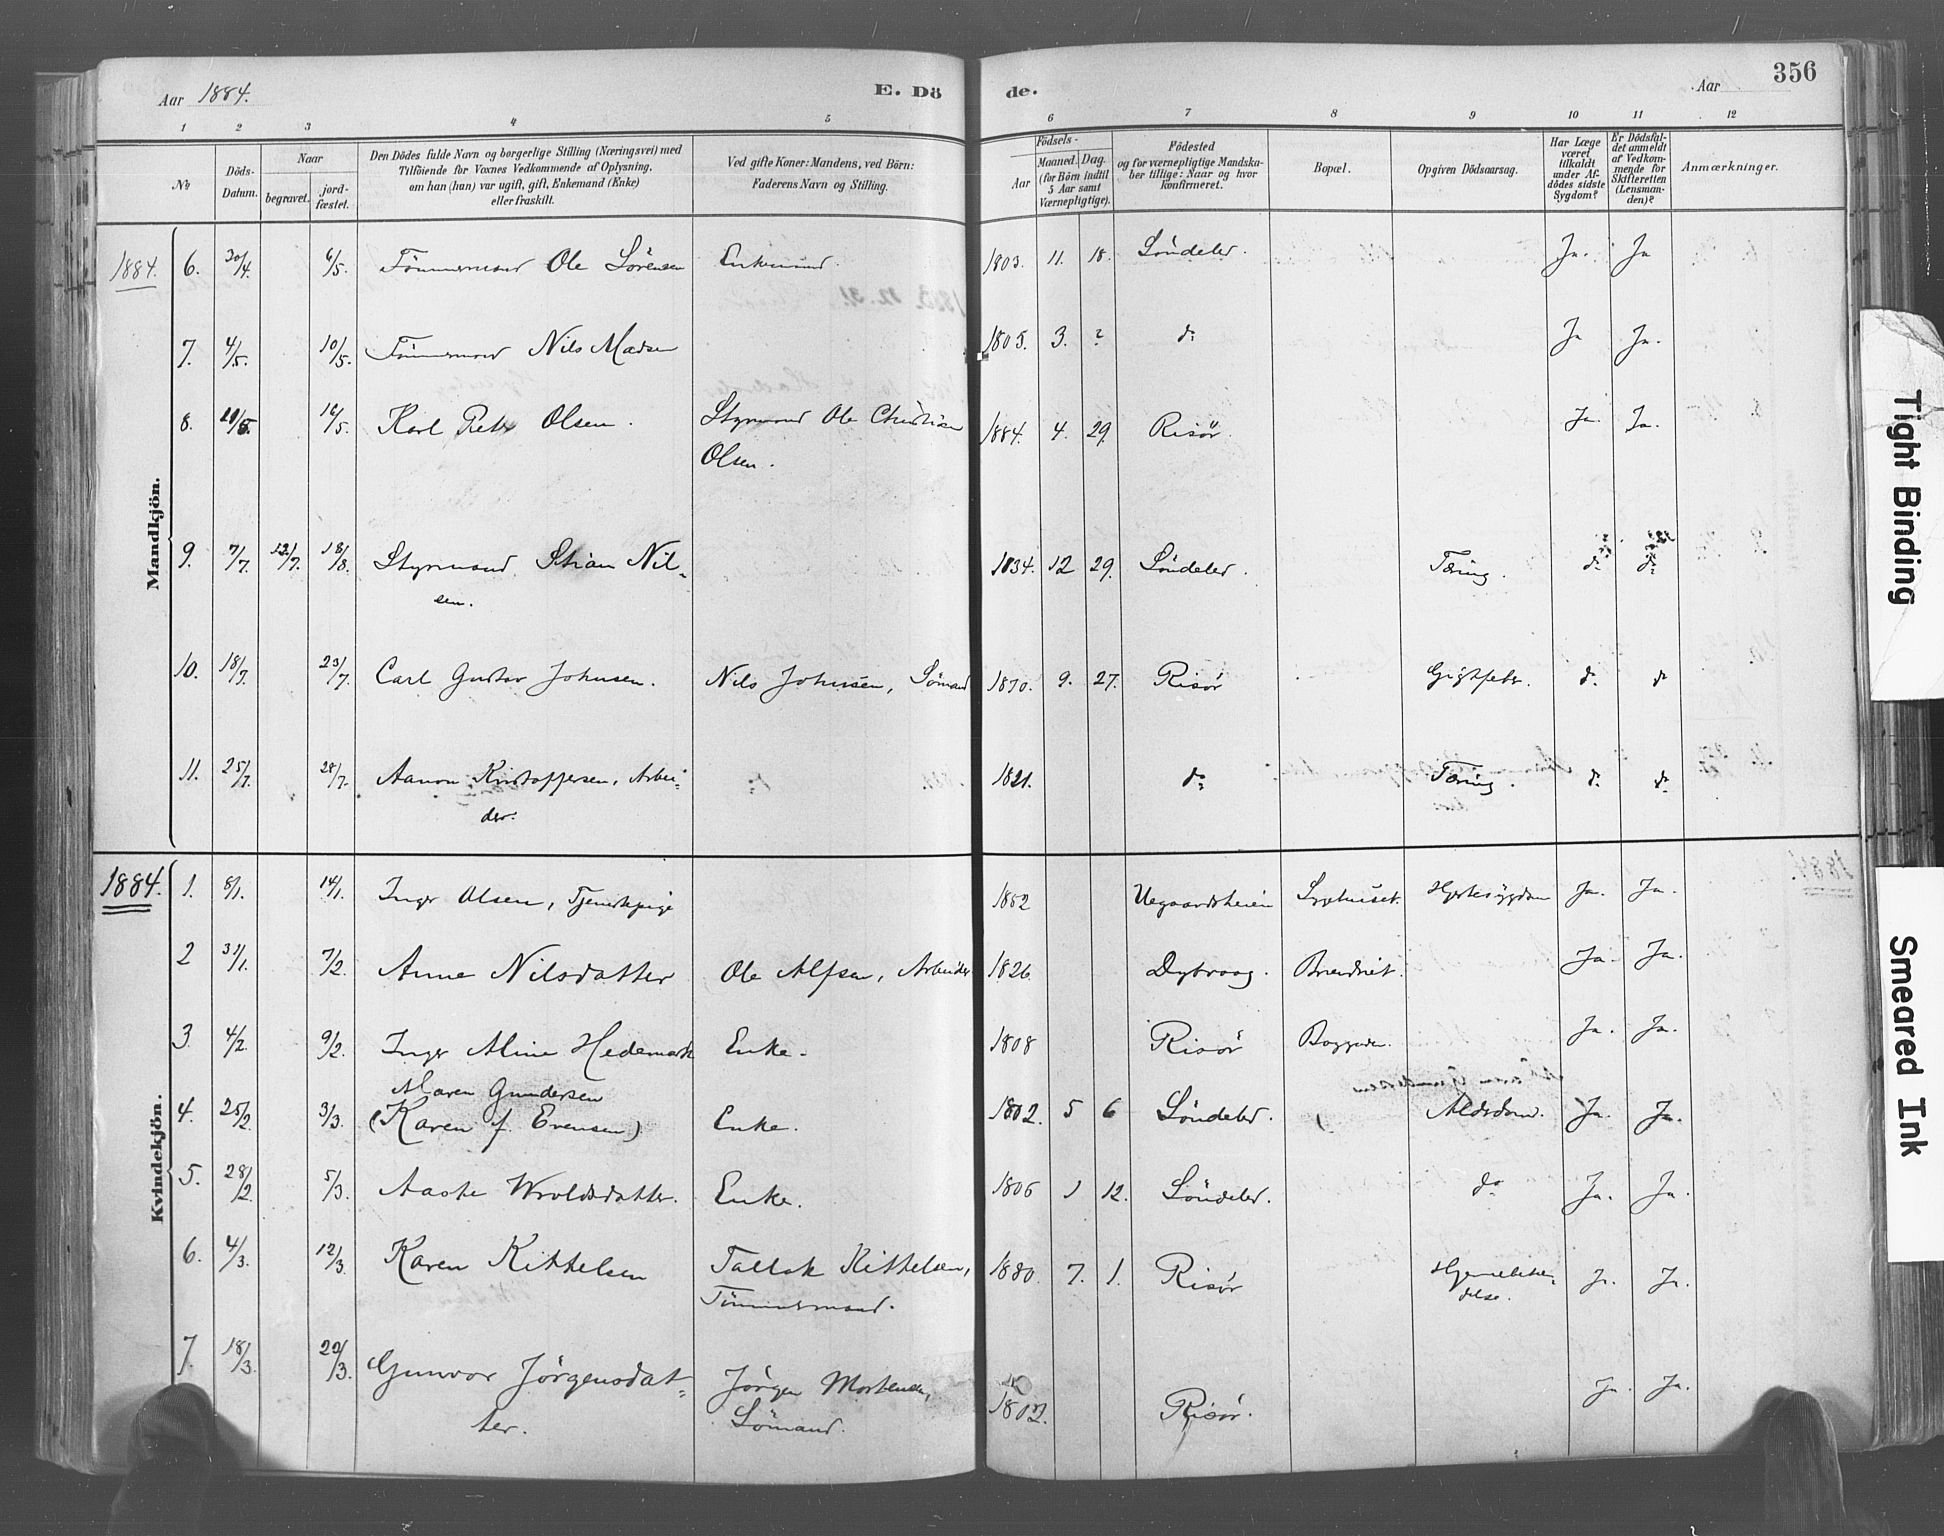 Aar 1884. E. Dö de. Aar 356
1 2 3 4 5 6 7 8 9 10 11 12
No
Döds-Datum.
Naar
begravet.
jord-fæstet.
Den Dödes fulde Navn og borgerlige Stilling (Næringsvei) med
Tilföiende for Voxnes Vedkommende af Oplysning,
om han (hun) var ugift, gift, Enkemand (Enke)
eller fraskilt.
Ved gifte Koner: Mandens, ved Börn:
Faderens Navn og Stilling.
Födsels-
Aar
Maaned. Dag.
(for Börn indtil
5 Aar samt
Værnepligtige).
Födested
og for værnepligtige Mandska-
ber tillige: Naar og hvor
konfirmeret.
Bopæl.
Opgiven Dödsaarsag.
Har Læge
været
tilkaldt
under Af-
dödes sidste
Sygdom?
Er Dödsfal-
det anmeldt
af Vedkom-
mende for
Skifteretten
(Lensman-
den)?
Anmærkninger.
Mandkjön.
1884. 6. 30/4. 6/5. Tömmermand Ole Sörensen Enkemand. 1803. 11. 18. Söndeled. Ja. Ja
7. 4/5. 10/5. Tömmermand Nils Madsen 1805. 3. ? do Ja Ja.
8. 16/5. Karl Peter Olsen. Styrmand Ole Christian 1884. 4. 29. Risör. Ja. Ja.
Olsen.
9. 7/7. 12/7. 18/8. Styrmand Stian Nil-
sen. 1834. 12 29. Söndeled. Tæring. do do
10. 18/7. 23/7. Carl Gustav Johnsen. Nils Johnsen, Sömand 1870. 9. 27. Risör Gigtfeber. do do
11. 25/7. 28/7. Aanon Kristoffersen, Arbei-
der. 1821. do Tæring. do do
Kvindekjön.
1884. 1. 8/1. 14/1. Inger Olsen, Tjenestepige 1852 Vegaardsheien Sygehuset. Hjertesygdom Ja. Ja.
2 31/1. 7/2. Anne Nilsdatter Ole Alfsen, Arbeider 1826 Dybvaag. Ja. Ja.
3 4/2. 9/2. Inger Aline Hedemark Enke. 1808 Risör Ja. Ja.
Maren Gundersen
4. 25/2. 3/3. (Karen f. Evensen) Enke. 1802. 5 6 Söndeled. Aldrdom. Ja. Ja.
5. 28/2. 5/3. Aaste Wroldsdatter. Enke. 1806 1 12. Söndeled. do Ja. Ja.
6. 4/3. 12/3. Karen Kittelsen Tallak Kittelsen, 1880. 7. 1. Risör Hjernebetæn-
delse. Ja. Ja.
Tömmermand.
7 18/3. 22/3. Gunvor Jörgensdat-
ter. Jörgen Mortensen,
Sömand. Risör. Ja. Ja.
Tight Binding
Smeared Ink